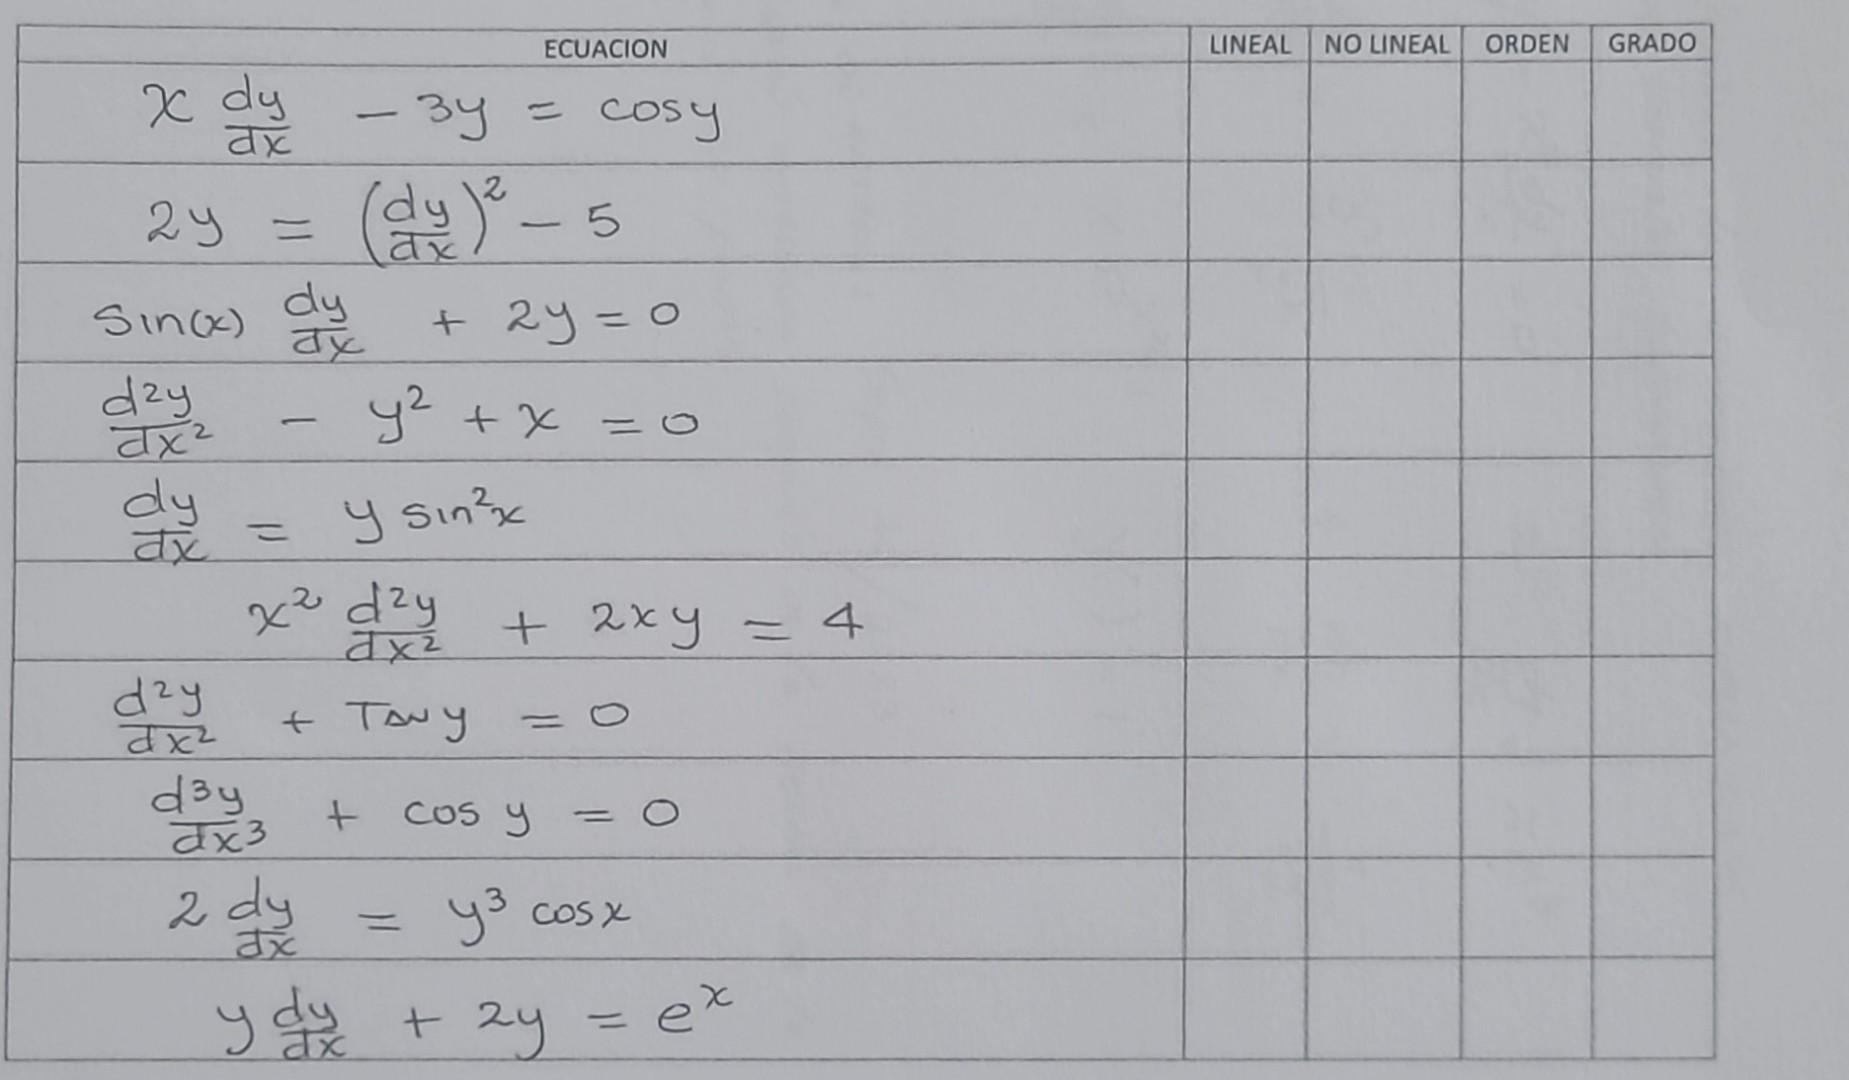 ECUACION LINEAL NO LINEAL ORDEN GRADO
x dy/dx - 3y = cosy
2y = (dy/dx)² - 5
Sin(x) dy/dx + 2y = 0
d²y/dx² - y² + x = 0
dy/dx = y sin²x
x² d²y/dx² + 2xy = 4
d²y/dx² + Tan y = 0
d³y/dx³ + cos y = 0
2 dy/dx = y³ cosx
y dy/dx + 2y = eˣ